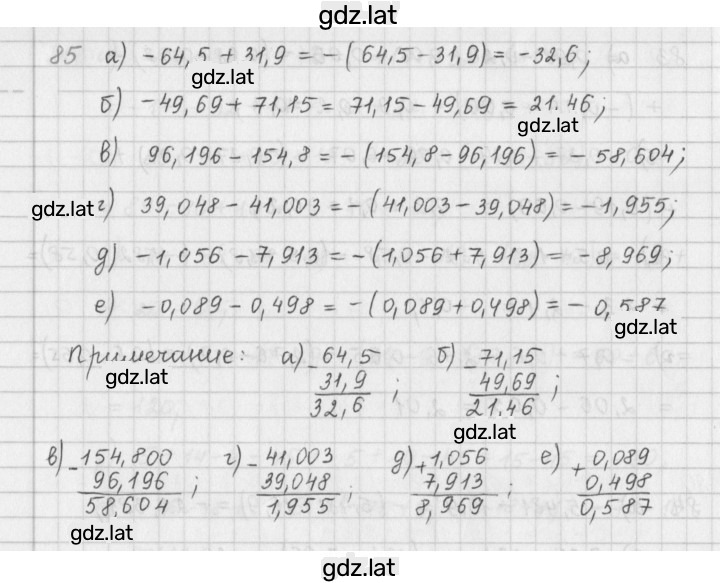 gdz.lat
85 а) -64,5 + 31,9 = -(64,5-31,9) = -32,6;
gdz.lat
б) -49,69 + 71,15 = 71,15 - 49,69 = 21.46;
gdz.lat
в) 96,196 - 154,8 = -(154,8-96,196) = -58,604;
gdz.lat г) 39,048 - 41,003 = -(41,003-39,048) = -1,955;
д) -1,056 - 7,913 = -(1,056+7,913) = -8,969;
е) -0,089 - 0,498 = -(0,089+0,498) = -0,587
gdz.lat
Примечание: а) -64,5 б) -71,15
gdz.lat 31,9 ; 49,69 ;
32,6 21.46
gdz.lat
в) -154,800 г) -41,003 д) +1,056 е) +0,089
96,196 ; 39,048 ; 7,913 ; 0,498
58,604 1,955 8,969 0,587
gdz.lat
gdz.lat